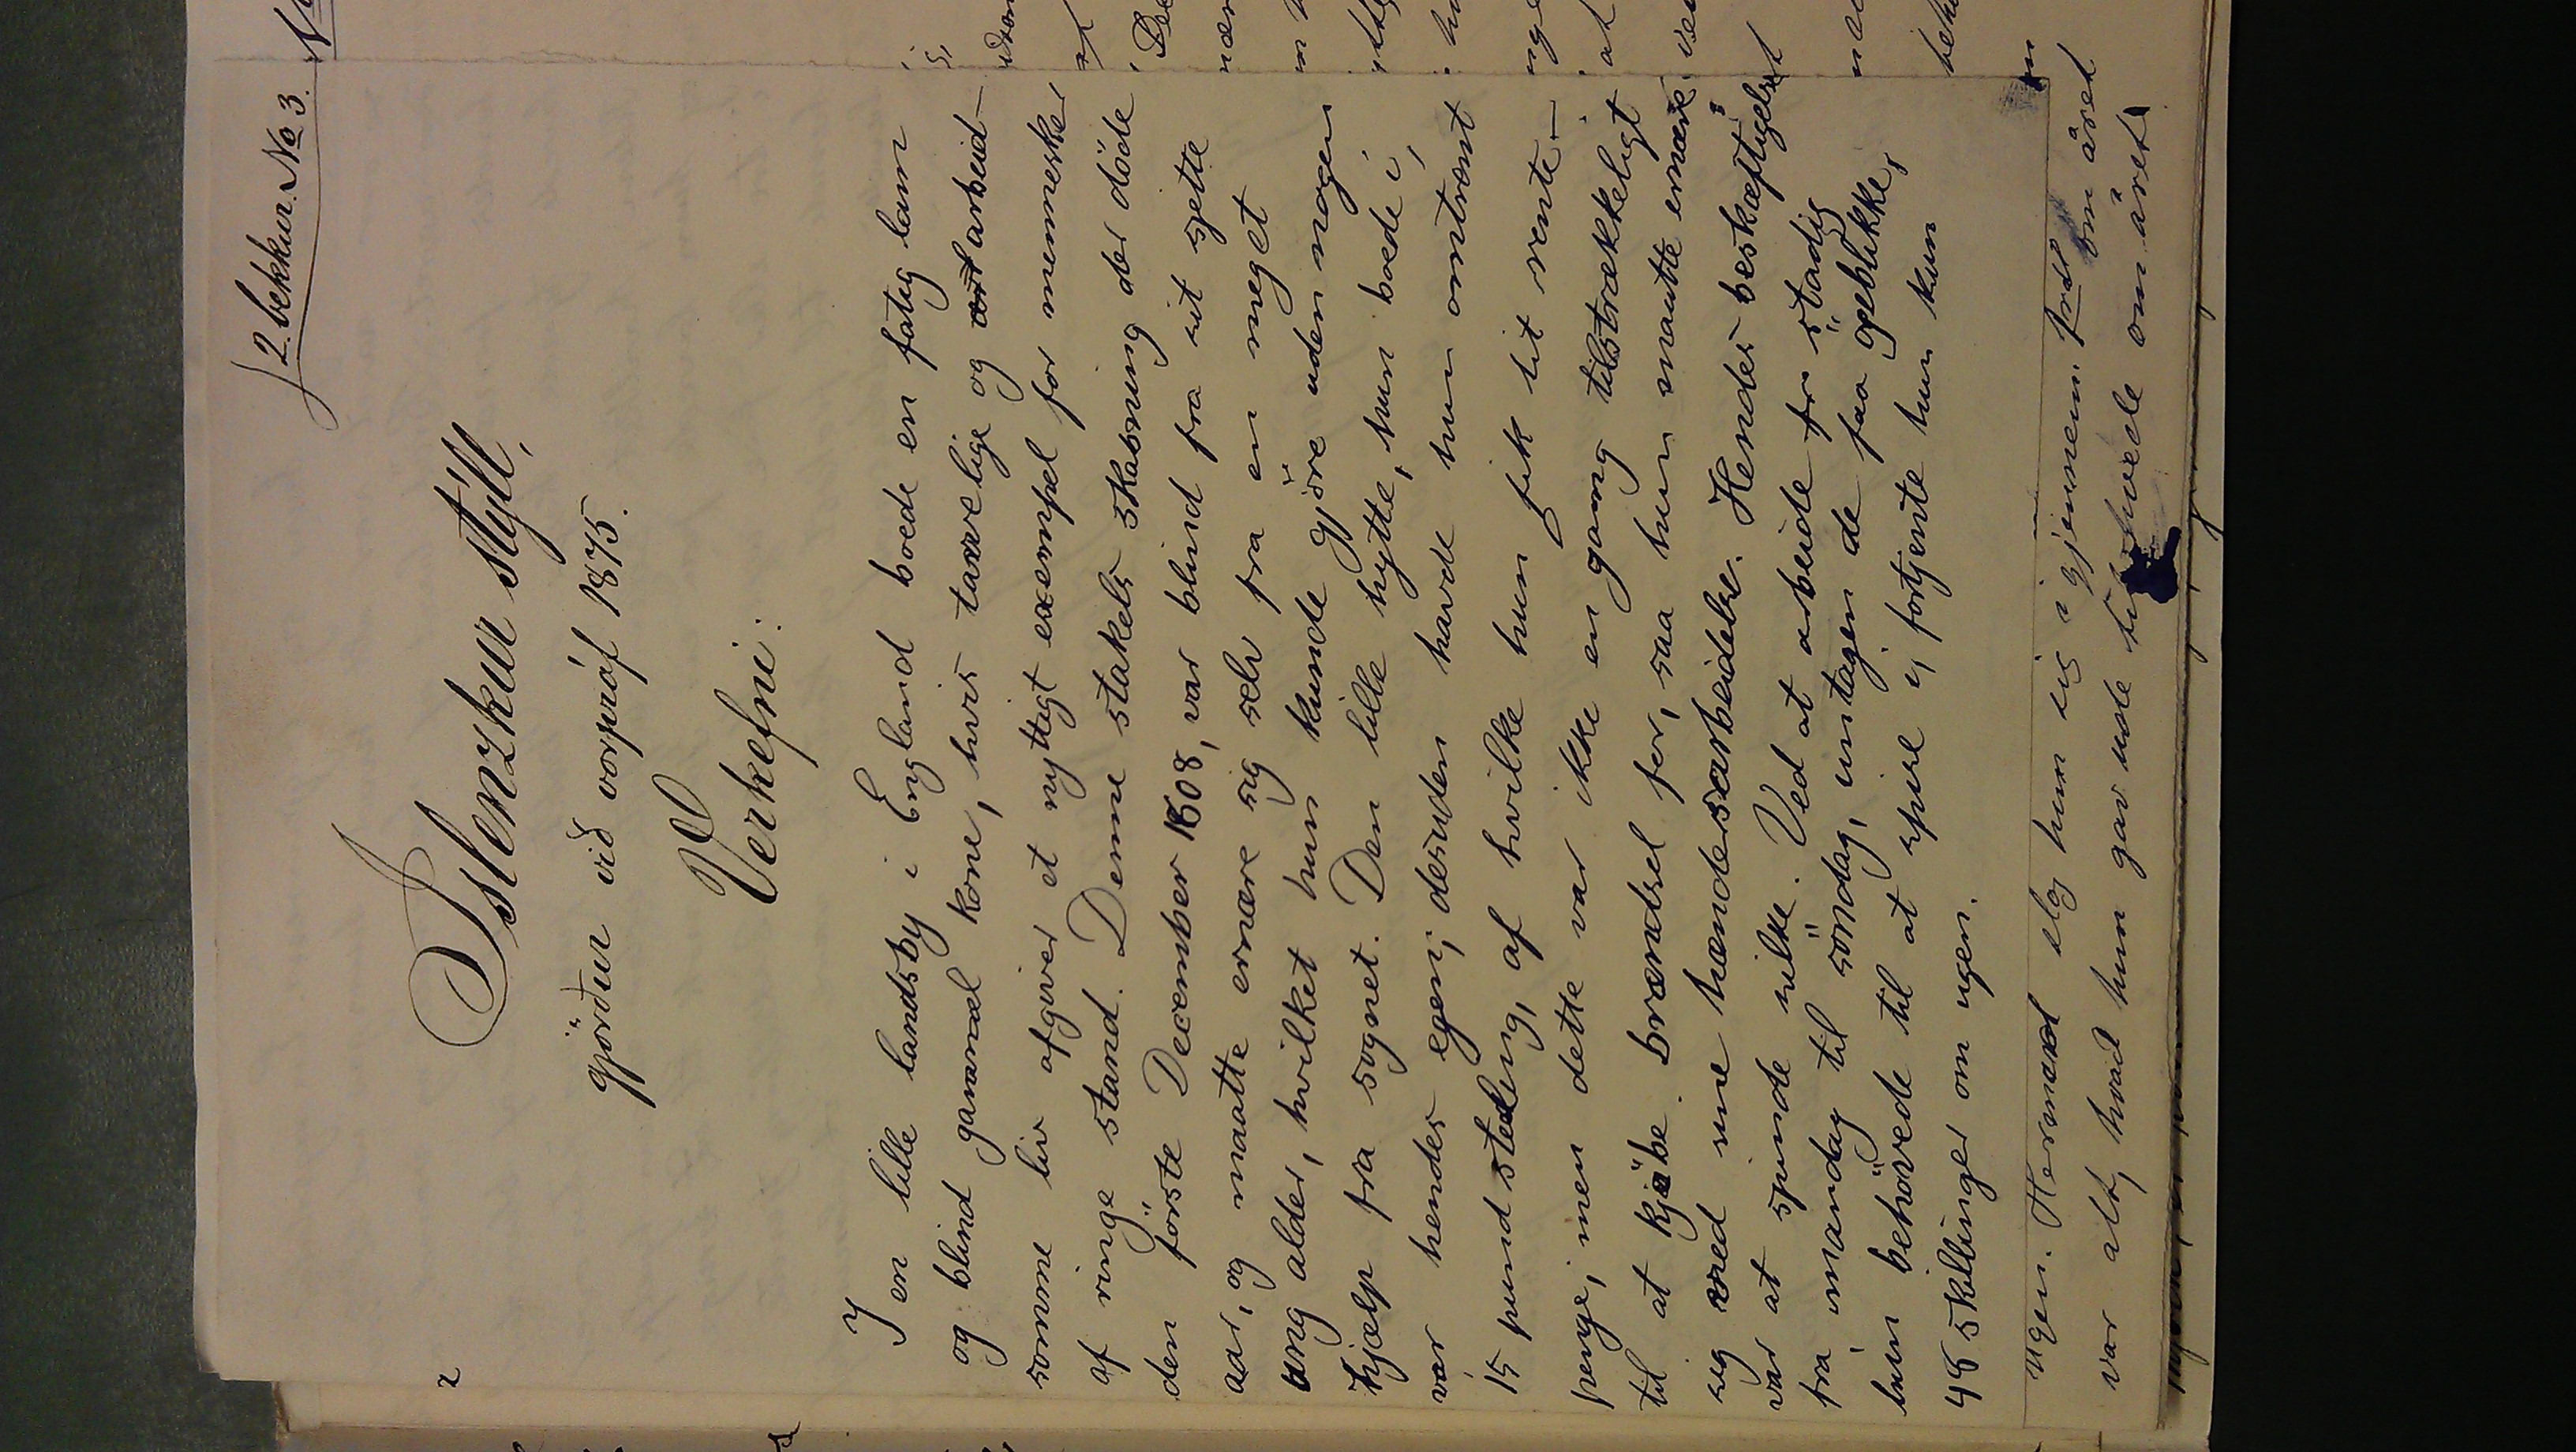 2. bekkur. No 3.
Islenzkur stýll,
gjörður við vorpróf 1875.
Verkefni:
I en lille landsby i England boede en fatig lam
og blind gammel kone, hvis tarvelige og arbeid-
somme liv afgiver et nyttigt exempel for mennesker
af ringe stand. Denne stakels skabning der döde
den förste December 1608, var blind fra sit sjette
aar, og maatte ernære sig selv fra en meget
ung alder, hvilket hun kunde gjöre uden nogen
hjælp fra sognet. Den lille hytte, hun boede i,
var hendes egen; desuden havde hun omtrent
15 pund sterling, af hvilke hun fik lit rente-
penge; men dette var ikke en gang tilstrækkeligt
til at kjøbe brændsel for, saa hun maatte ernære
sig med sine hændersarbeidelse. Hendes beskæftigelse
var at spinde silke. Ved at arbeide fr stadig
fra mandag til söndag, untagen de faa öjeblikke,
hun behövede til at spise i, fortjente hun kun
48 skillinger om ugen.
ugen. Hermed slog hun sig igjennem. om året
var alt, hvad hun gav ude til hvede om året.